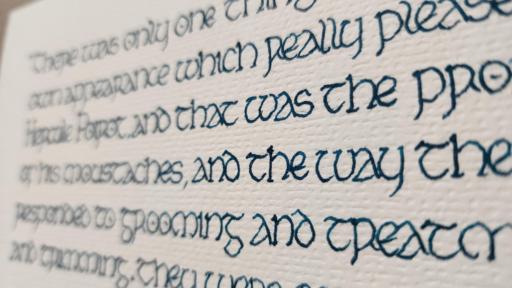 There was only one thing
own appearance which really please
Hercule Poirot, and that was the pro
of his moustaches, and the way the
responded to grooming and treatm
and trimming. They were